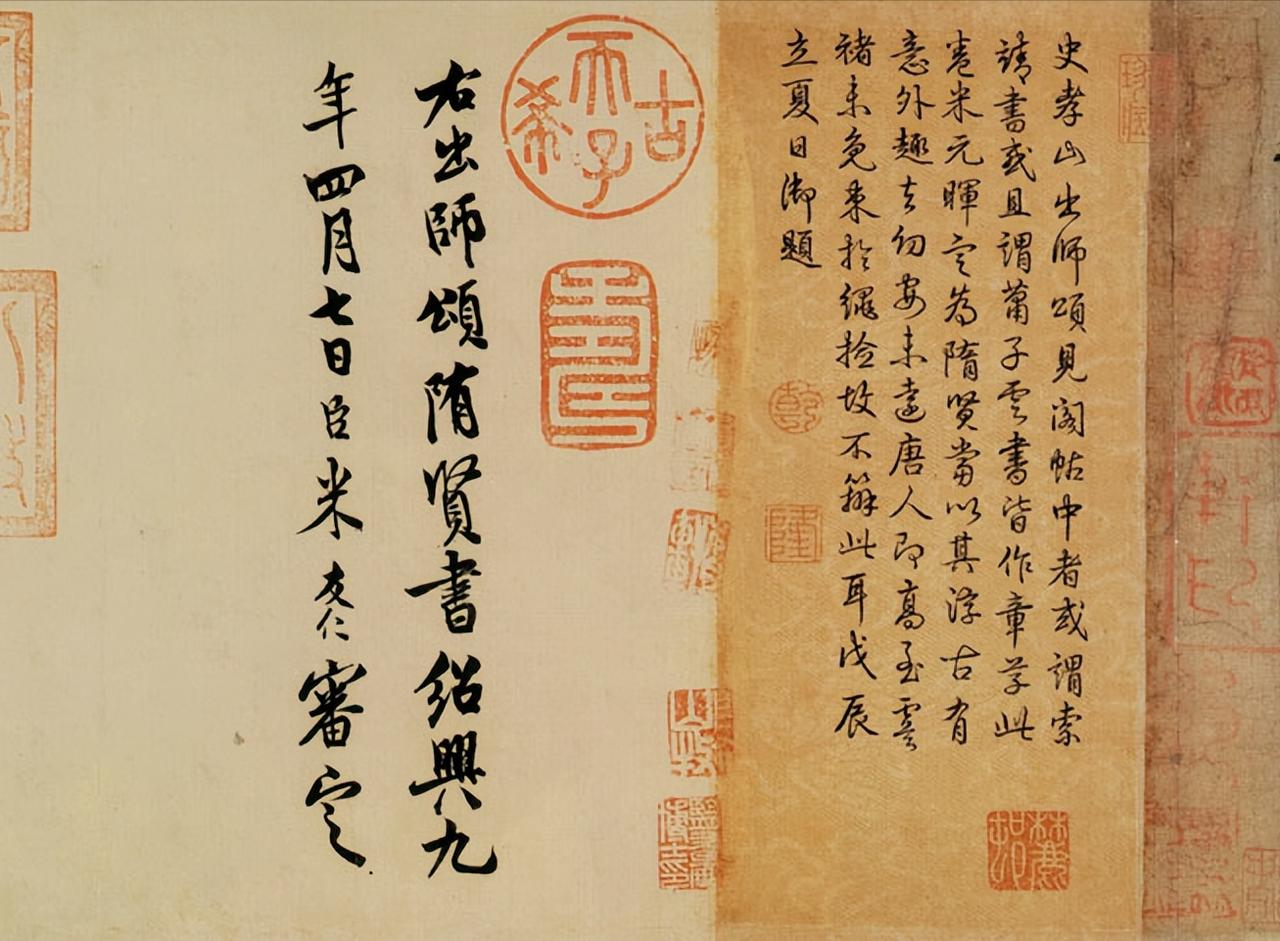 史孝山出師頌見閣帖中者或謂索
靖書或且謂蕭子雲書皆作章草此
卷米元暉定為隋賢當以其淳古有
意外趣去幼安未遠唐人即高至虞
褚未免束於繩檢故不辦此耳戊辰
立夏日御題
乾
隆
古希天子
壽
右出師頌隋賢書紹興九
年四月七日臣米友仁審定